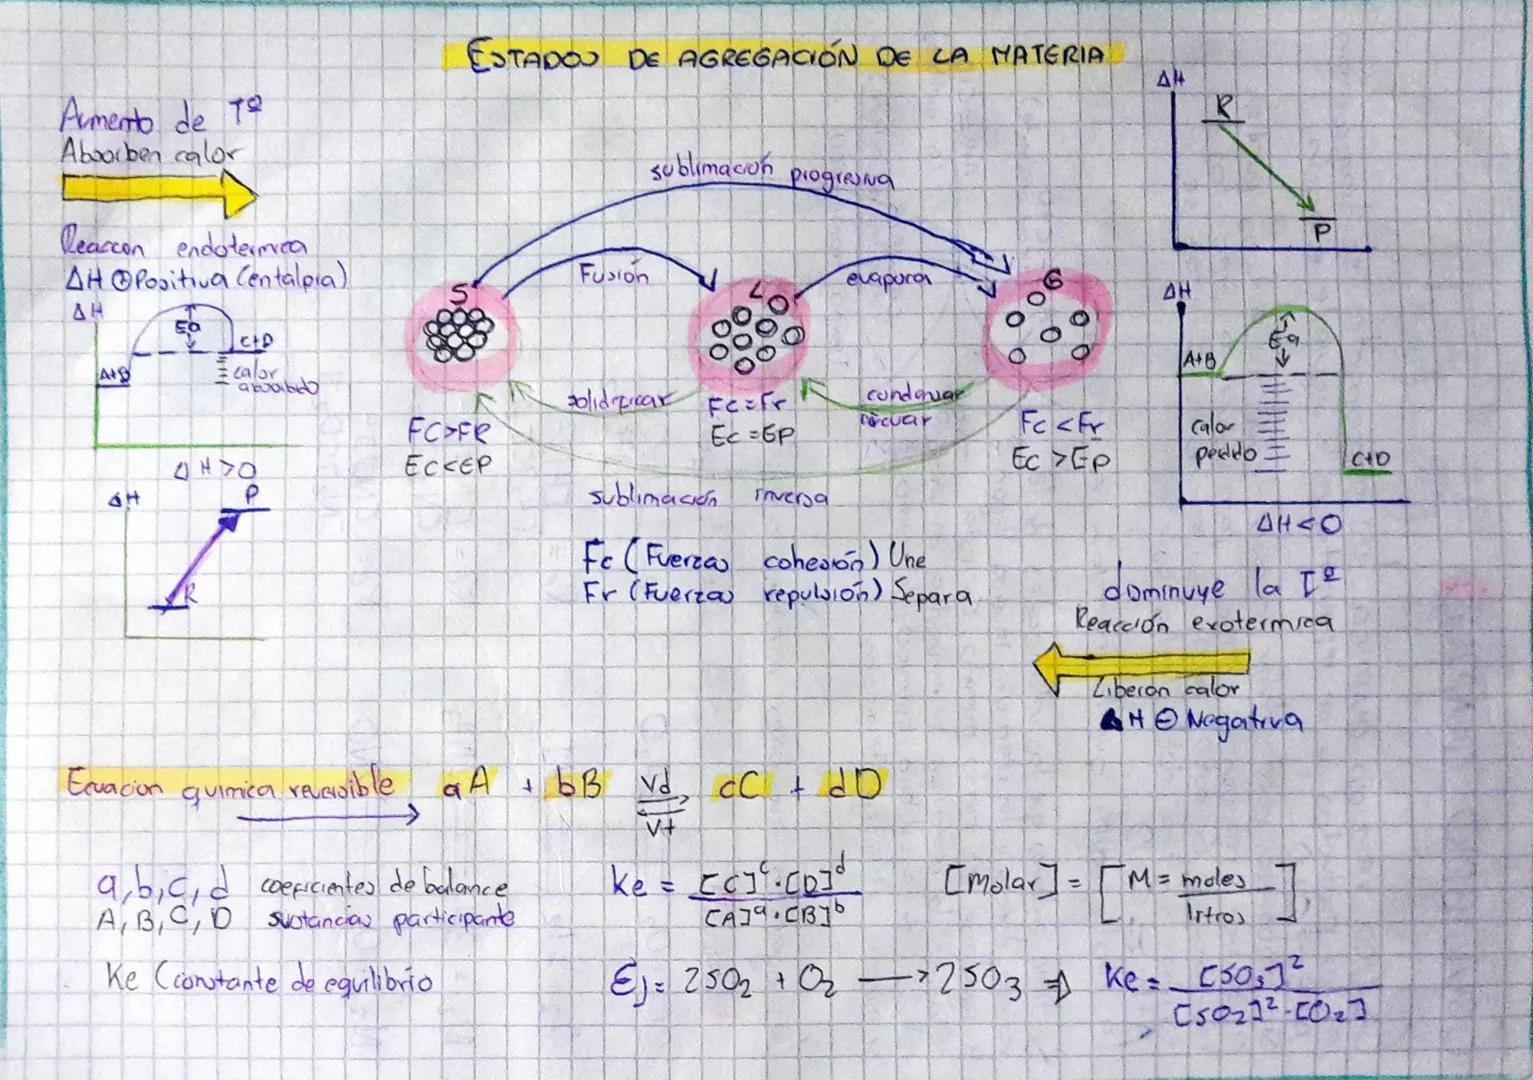 ESTADOS DE AGREGACIÓN DE LA MATERIA
Aumento de Tº
Absorben calor
Reaccon endotermica
ΔH ⊕ Positiva (entalpia)
ΔH
Ea
A+B
C+D
calor
absorbido
ΔH>0
ΔH
P
R
sublimación progresiva
Fusión
evapora
S
L
G
solidificar
condensar
licuar
FC>FR
EC<EP
Fc=Fr
Ec=EP
Fc<Fr
Ec>Ep
sublimación inversa
Fc (Fuerzas cohesión) Une
Fr (Fuerzas repulsión) Separa
ΔH
R
P
ΔH
A+B
Ea
calor
perdido
C+D
ΔH<0
disminuye la Tº
Reacción exotermica
Liberan calor
ΔH ⊖ Negativa
Ecuacion quimica reversible aA + bB ⇌ cC + dD
Vd
Vt
a,b,c,d coeficientes de balance
A,B,C,D sustancias participante
Ke (constante de equilibrio
Ke = [C]ᶜ·[D]ᵈ
[A]ᵃ·[B]ᵇ
[Molar] = [M = moles
litros]
Ej= 2SO₂ + O₂ → 2SO₃ ⇒ Ke = [SO₃]²
[SO₂]²·[O₂]